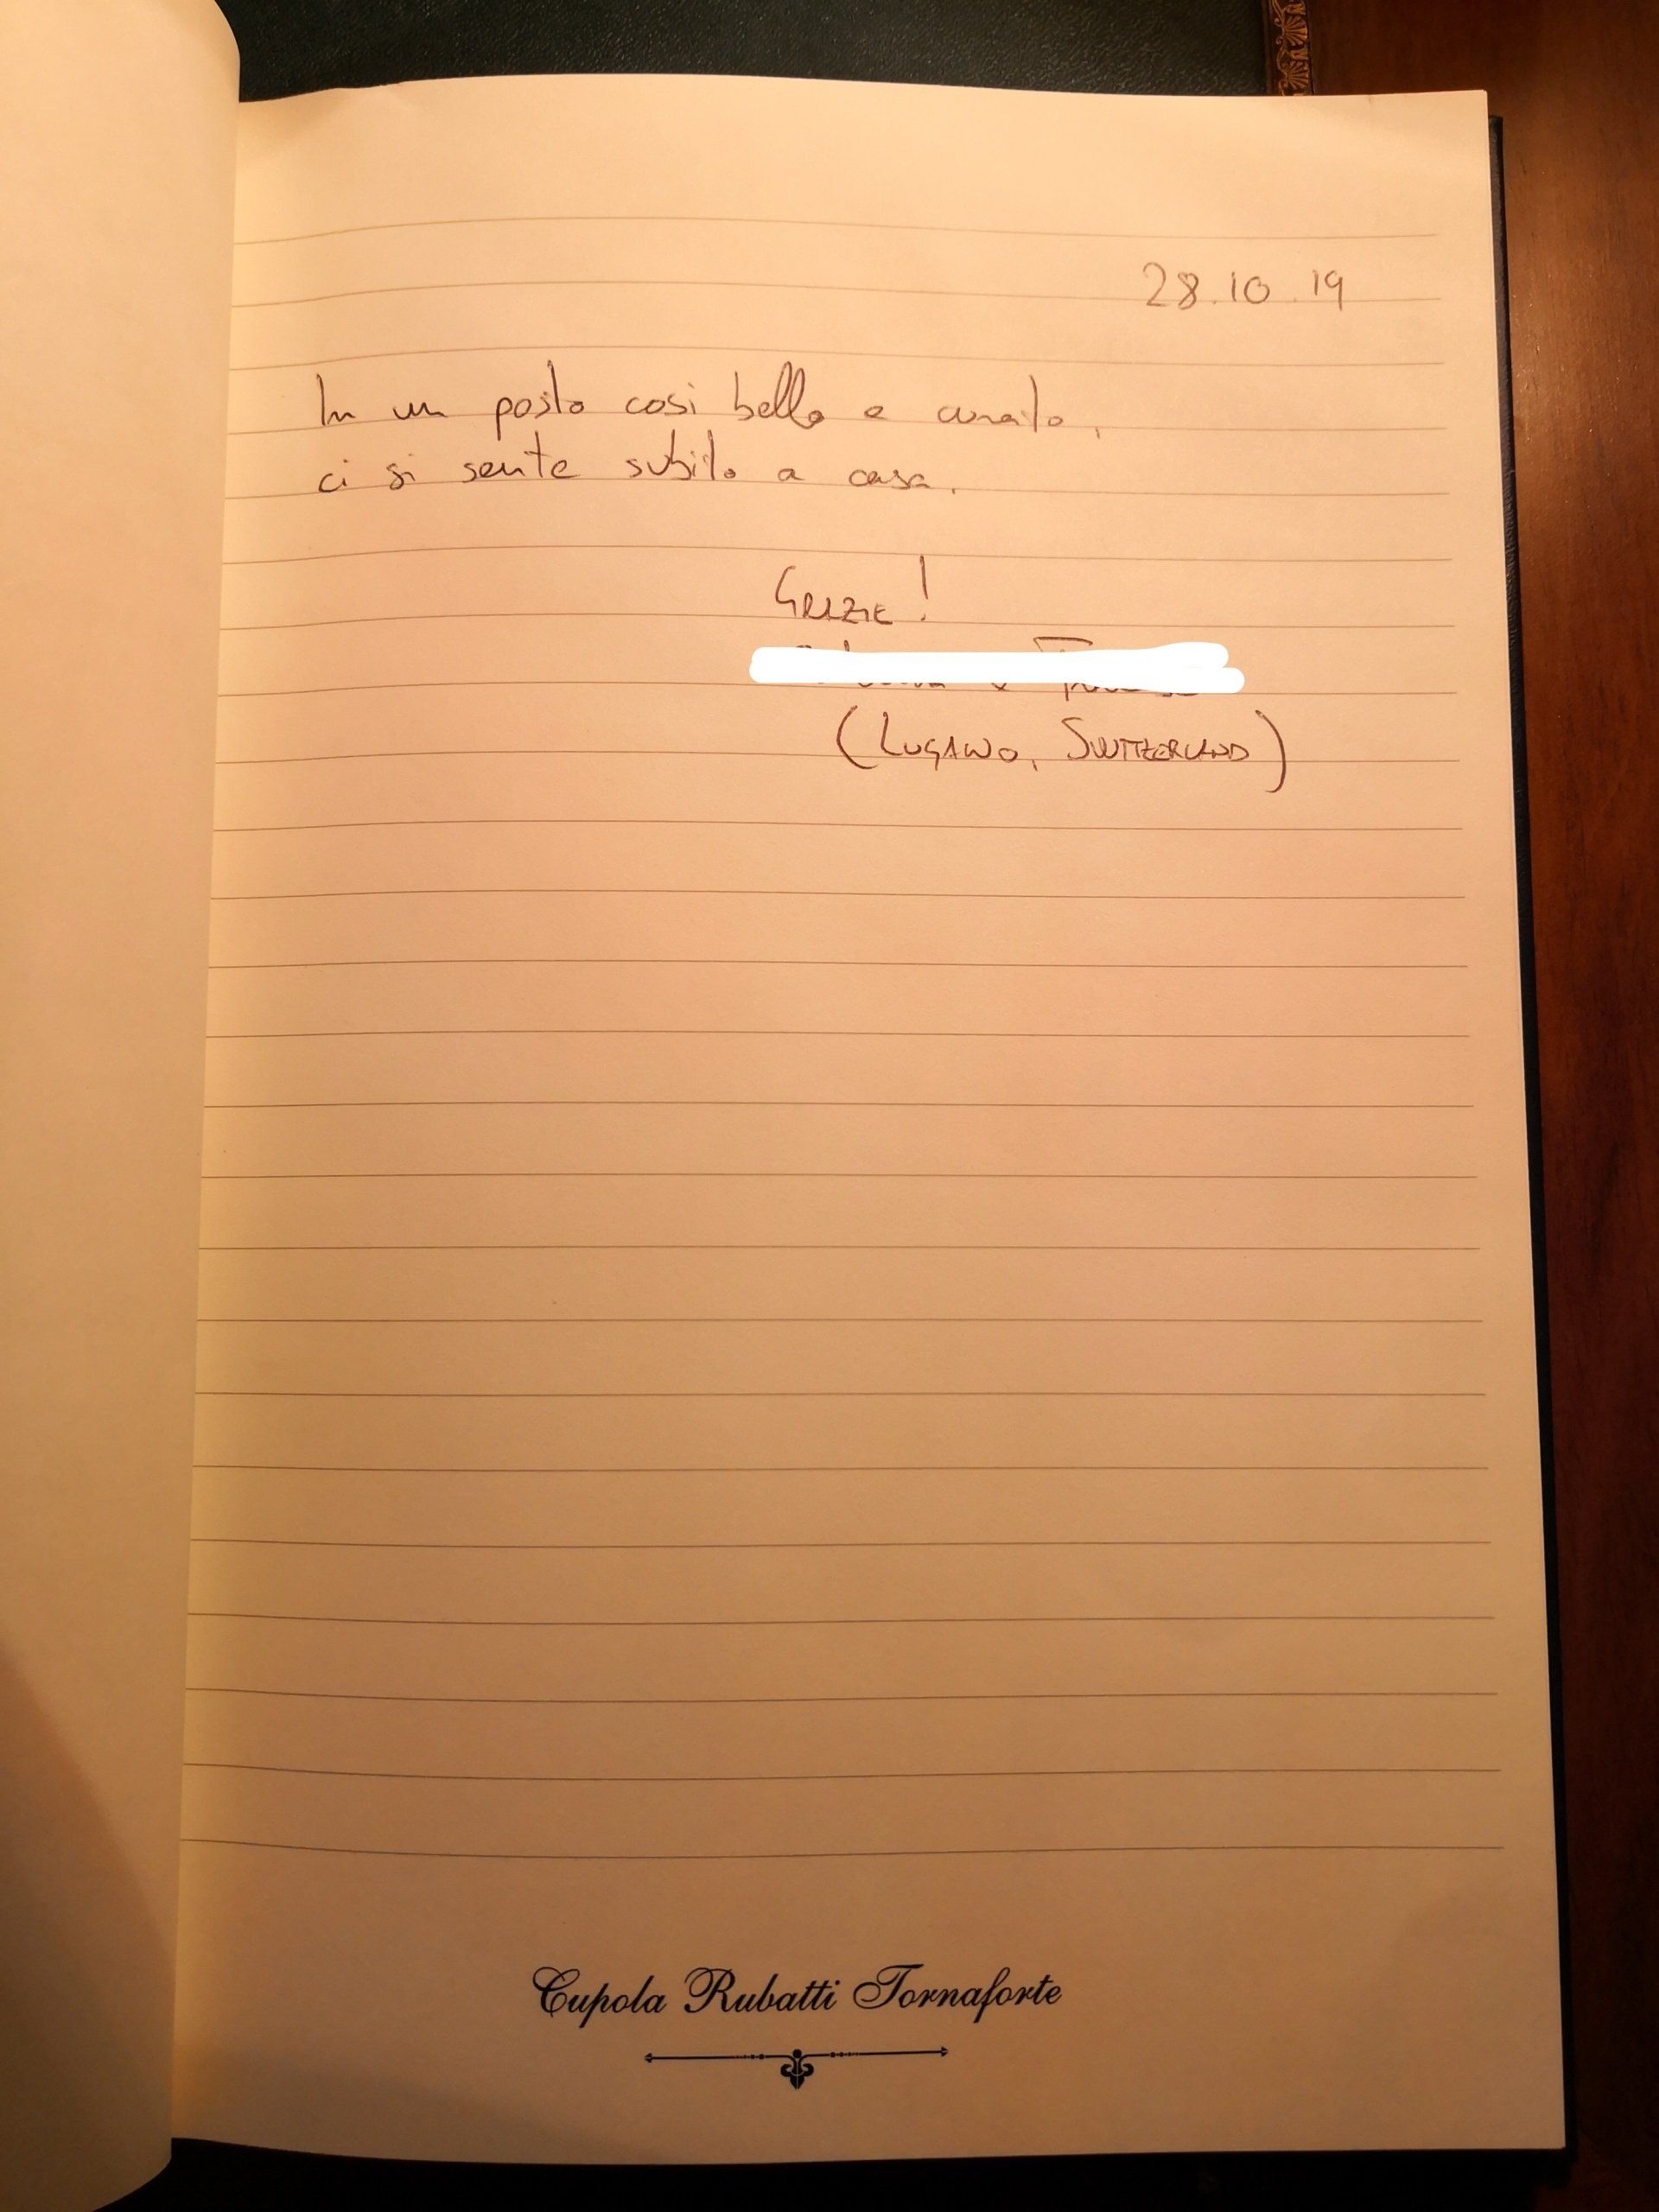 28.10.19
In un posto così bello e curato,
ci si sente subito a casa.
GRAZIE!
(LUGANO, SWITZERLAND)
Cupola Rubatti Tornaforte